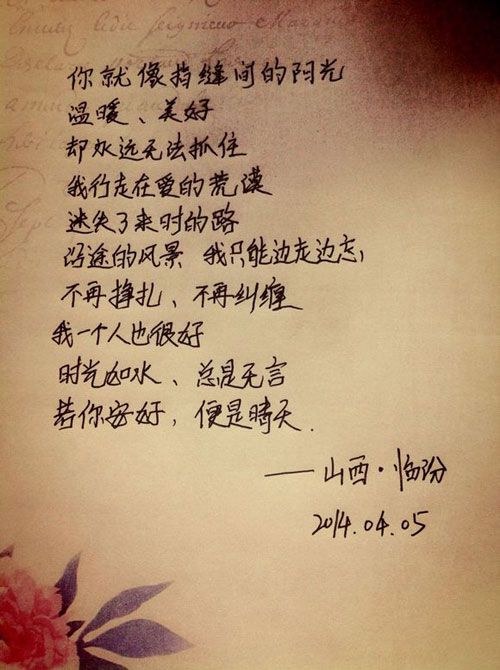 你就像指缝间的阳光
温暖、美好
却永远无法抓住
我行走在爱的荒漠
迷失了来时的路
沿途的风景 我只能边走边忘,
不再挣扎、不再纠缠
我一个人也很好
时光如水、总是无言
若你安好，便是晴天.
——山西·临汾
2014.04.05